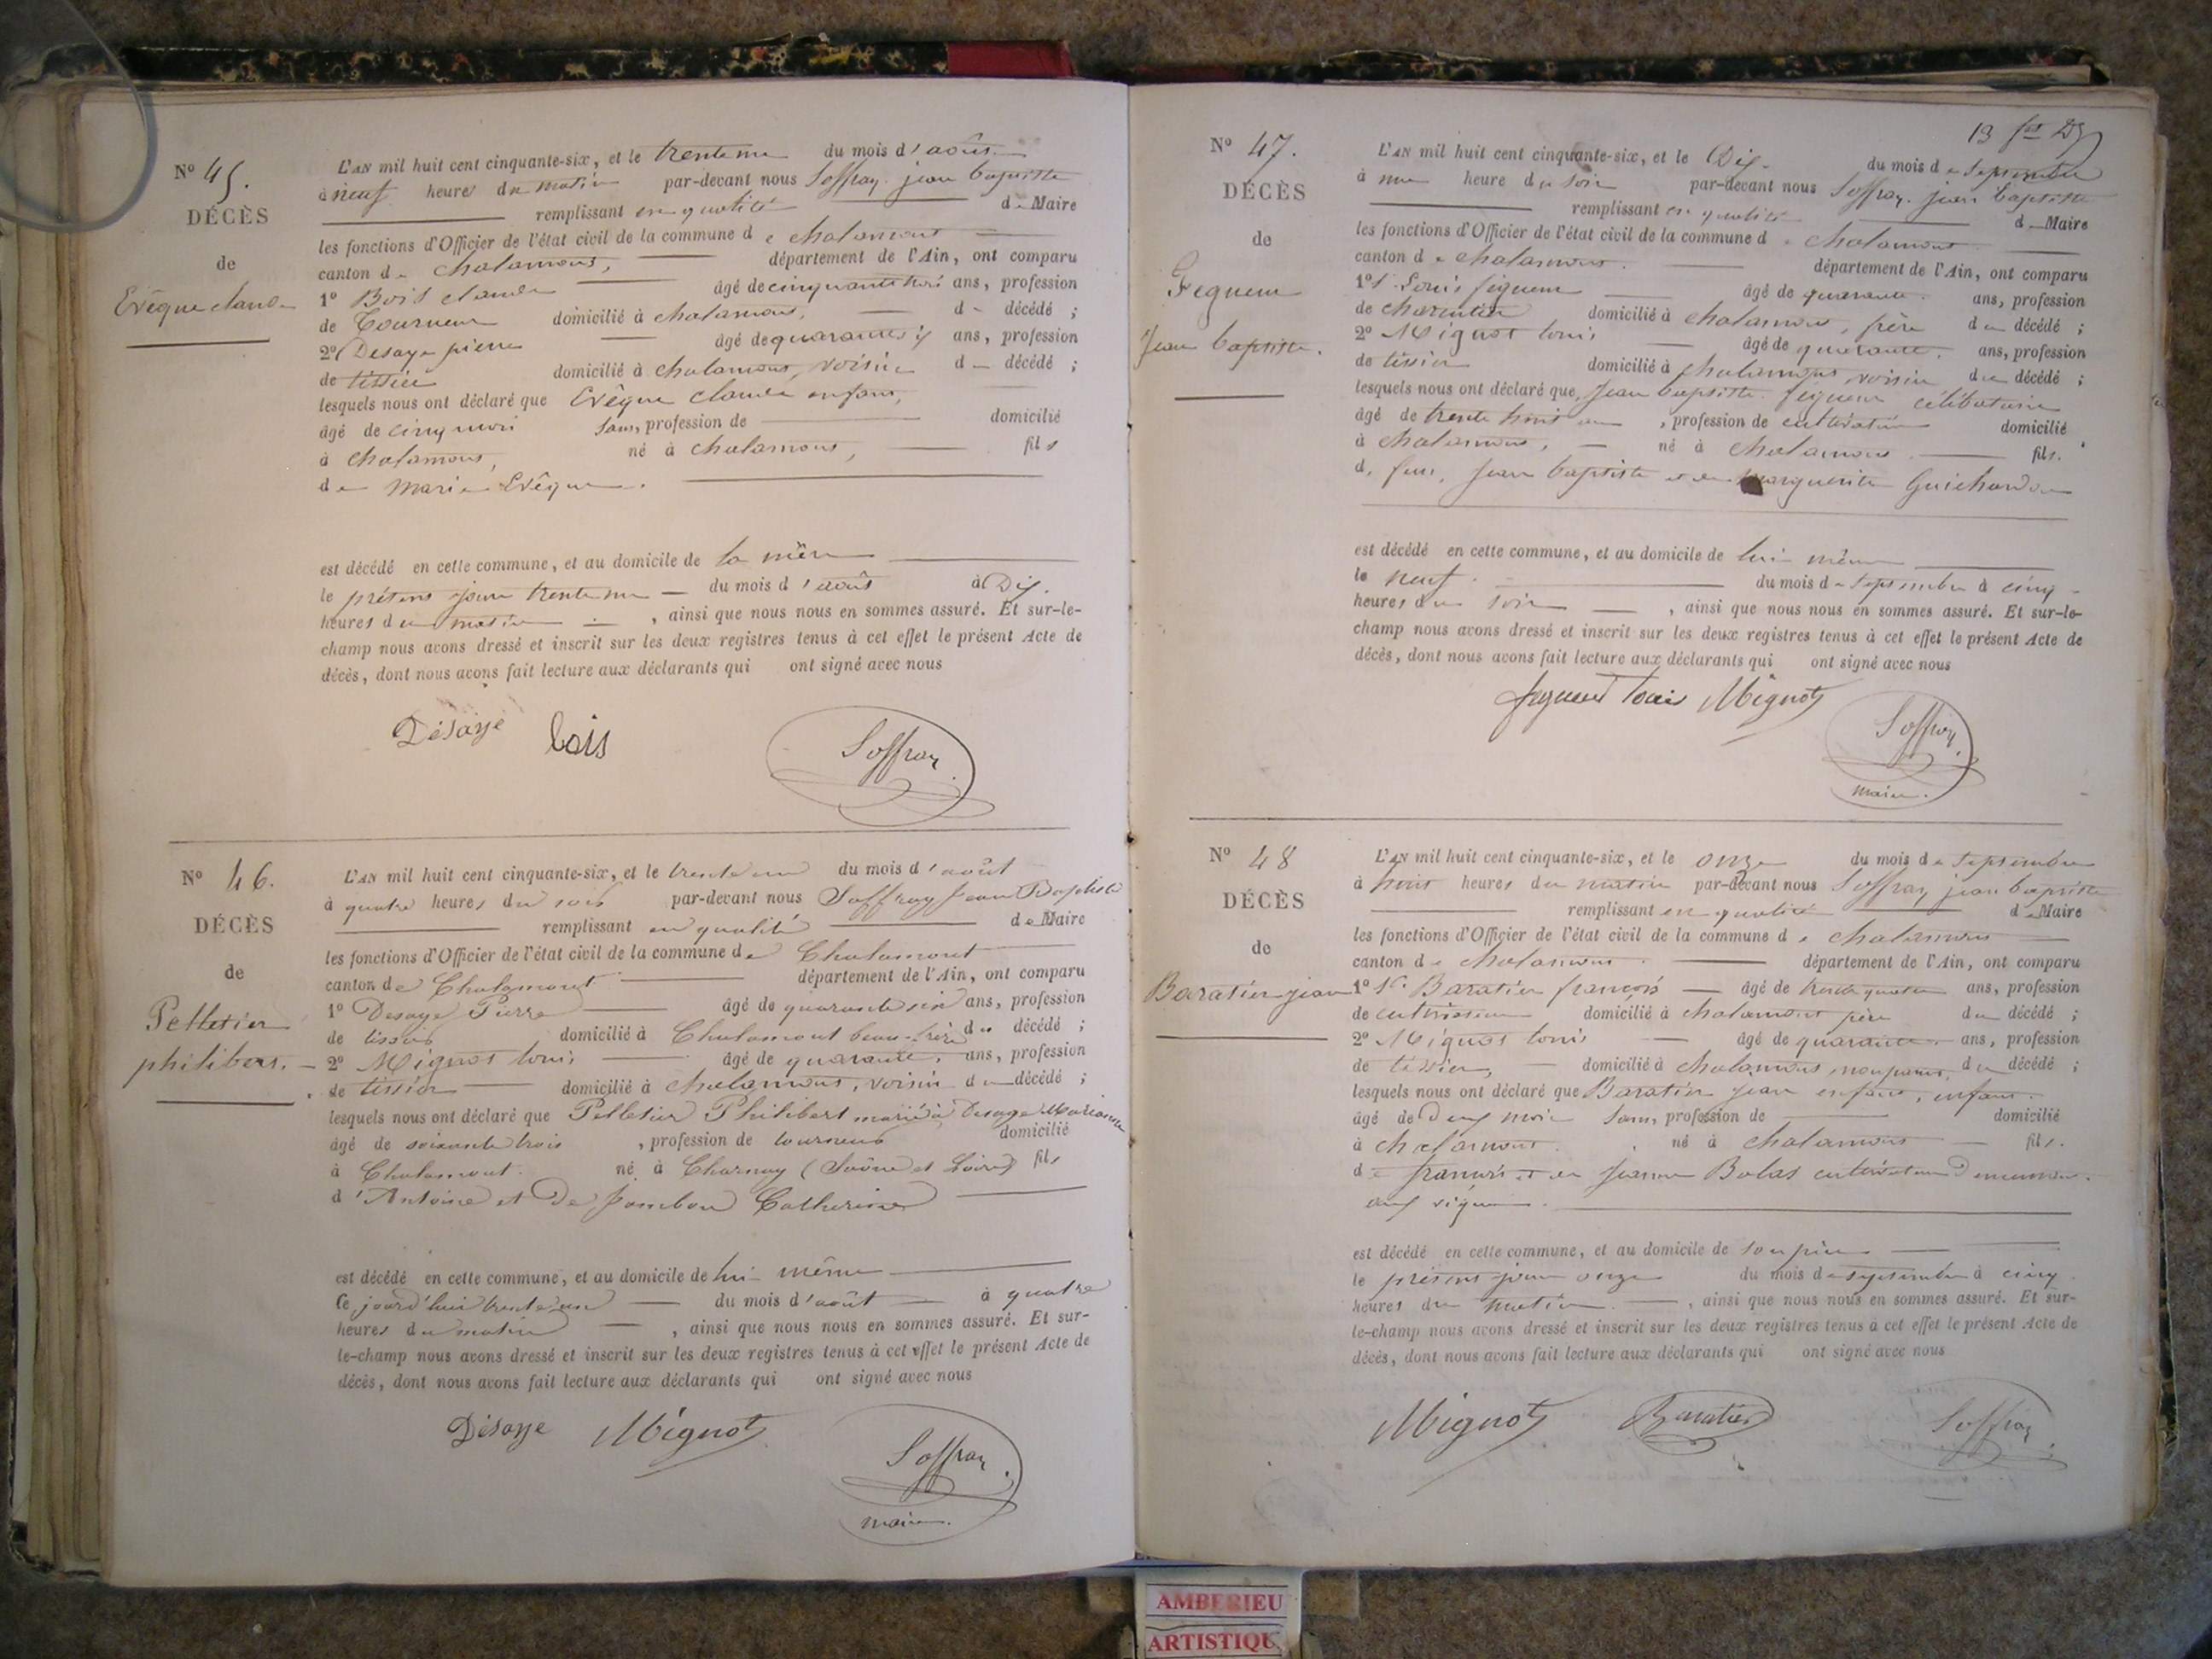 N° 45.
DÉCÈS
de
Evêque claude
L'AN mil huit cent cinquante-six, et le trente un du mois d'août
à neuf heures du matin par-devant nous Soffray jean baptiste
remplissant en qualité de Maire
les fonctions d'Officier de l'état civil de la commune de chalamont
canton de chalamont, département de l'Ain, ont comparu
1° Bois claude âgé de cinquante trois ans, profession
de Tourneur domicilié à chalamont, d décédé ;
2° Desaye pierre âgé de quarante six ans, profession
de tissier domicilié à chalamont, voisin d décédé ;
lesquels nous ont déclaré que Evêque claude enfant,
âgé de cinq mois sans, profession de domicilié
à chalamont, né à chalamont, fils
de Marie Evêque.
est décédé en cette commune, et au domicile de la mère
le présent jour trente un du mois d'août à Dix
heures du matin, ainsi que nous nous en sommes assuré. Et sur-le-
champ nous avons dressé et inscrit sur les deux registres tenus à cet effet le présent Acte de
décès, dont nous avons fait lecture aux déclarants qui ont signé avec nous
Désaye bois Soffray
N° 46.
DÉCÈS
de
Pelletier
philibert
L'AN mil huit cent cinquante-six, et le trente un du mois d'août
à quatre heures du soir par-devant nous Soffray Jean Baptiste
remplissant en qualité de Maire
les fonctions d'Officier de l'état civil de la commune de Chalamont
canton de Chalamont département de l'Ain, ont comparu
1° Desaye Pierre âgé de quarante six ans, profession
de tissier domicilié à Chalamont beau-frère du décédé ;
2° Mignot louis âgé de quarante, ans, profession
de tissier domicilié à chalamont, voisin du décédé ;
lesquels nous ont déclaré que Pelletier Philibert marié à Desaye Marianne
âgé de soixante trois, profession de tourneur domicilié
à Chalamont. né à Charnay (Saône et Loire) fils
d'Antoine et De Jambon Catherine
est décédé en cette commune, et au domicile de lui même
Ce jourd'hui trente un du mois d'août à quatre
heures du matin, ainsi que nous nous en sommes assuré. Et sur-
le-champ nous avons dressé et inscrit sur les deux registres tenus à cet effet le présent Acte de
décès, dont nous avons fait lecture aux déclarants qui ont signé avec nous
Désaye Mignot Soffray
maire.
N° 47.
DÉCÈS
de
Fegueux
Jean baptiste.
L'AN mil huit cent cinquante-six, et le Dix du mois de septembre
à une heure du soir par-devant nous Soffray jean baptiste
remplissant en qualité de Maire
les fonctions d'Officier de l'état civil de la commune de chalamont
canton de chalamont. département de l'Ain, ont comparu
1° Louis âgé de quarante. ans, profession
de charretier domicilié à chalamont, frère du décédé ;
2° Mignot louis âgé de quarante. ans, profession
de tissier domicilié à chalamont voisin du décédé ;
lesquels nous ont déclaré que Jean baptiste célibataire
âgé de trente huit ans, profession de cultivateur domicilié
à chalamont, né à chalamont. fils.
de feu, Jean baptiste et de marguerite Guichardon
est décédé en cette commune, et au domicile de lui même
le neuf. du mois de septembre à cinq
heures du soir, ainsi que nous nous en sommes assuré. Et sur-le-
champ nous avons dressé et inscrit sur les deux registres tenus à cet effet le présent Acte de
décès, dont nous avons fait lecture aux déclarants qui ont signé avec nous
louis Mignot Soffray
maire.
N° 48
DÉCÈS
de
Baratier jean
L'AN mil huit cent cinquante-six, et le onze du mois de septembre
à huit heures du matin par-devant nous Soffray jean baptiste
remplissant en qualité de Maire
les fonctions d'Officier de l'état civil de la commune de chalamont
canton de chalamont. département de l'Ain, ont comparu
1° Sr. Baratier françois âgé de trente quatre ans, profession
de cultivateur domicilié à chalamont père du décédé ;
2° Mignot louis âgé de quarante ans, profession
de tissier, domicilié à chalamont non parent, du décédé ;
lesquels nous ont déclaré que Baratier jean enfant, enfant.
âgé de Deux mois sans, profession de domicilié
à chalamont. né à chalamont fils.
de françois et de jeanne Bolas cultivateur
est décédé en cette commune, et au domicile de son père
le présent jour onze du mois de septembre à cinq
heures du matin., ainsi que nous nous en sommes assuré. Et sur-
le-champ nous avons dressé et inscrit sur les deux registres tenus à cet effet le présent Acte de
décès, dont nous avons fait lecture aux déclarants qui ont signé avec nous
Mignot Baratier Soffray
AMBERIEU
ARTISTIQU